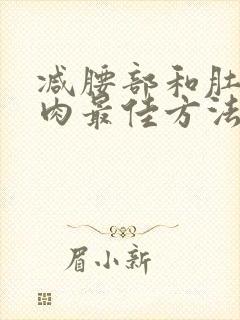 减腰部和肚
肉最佳方法
眉小新